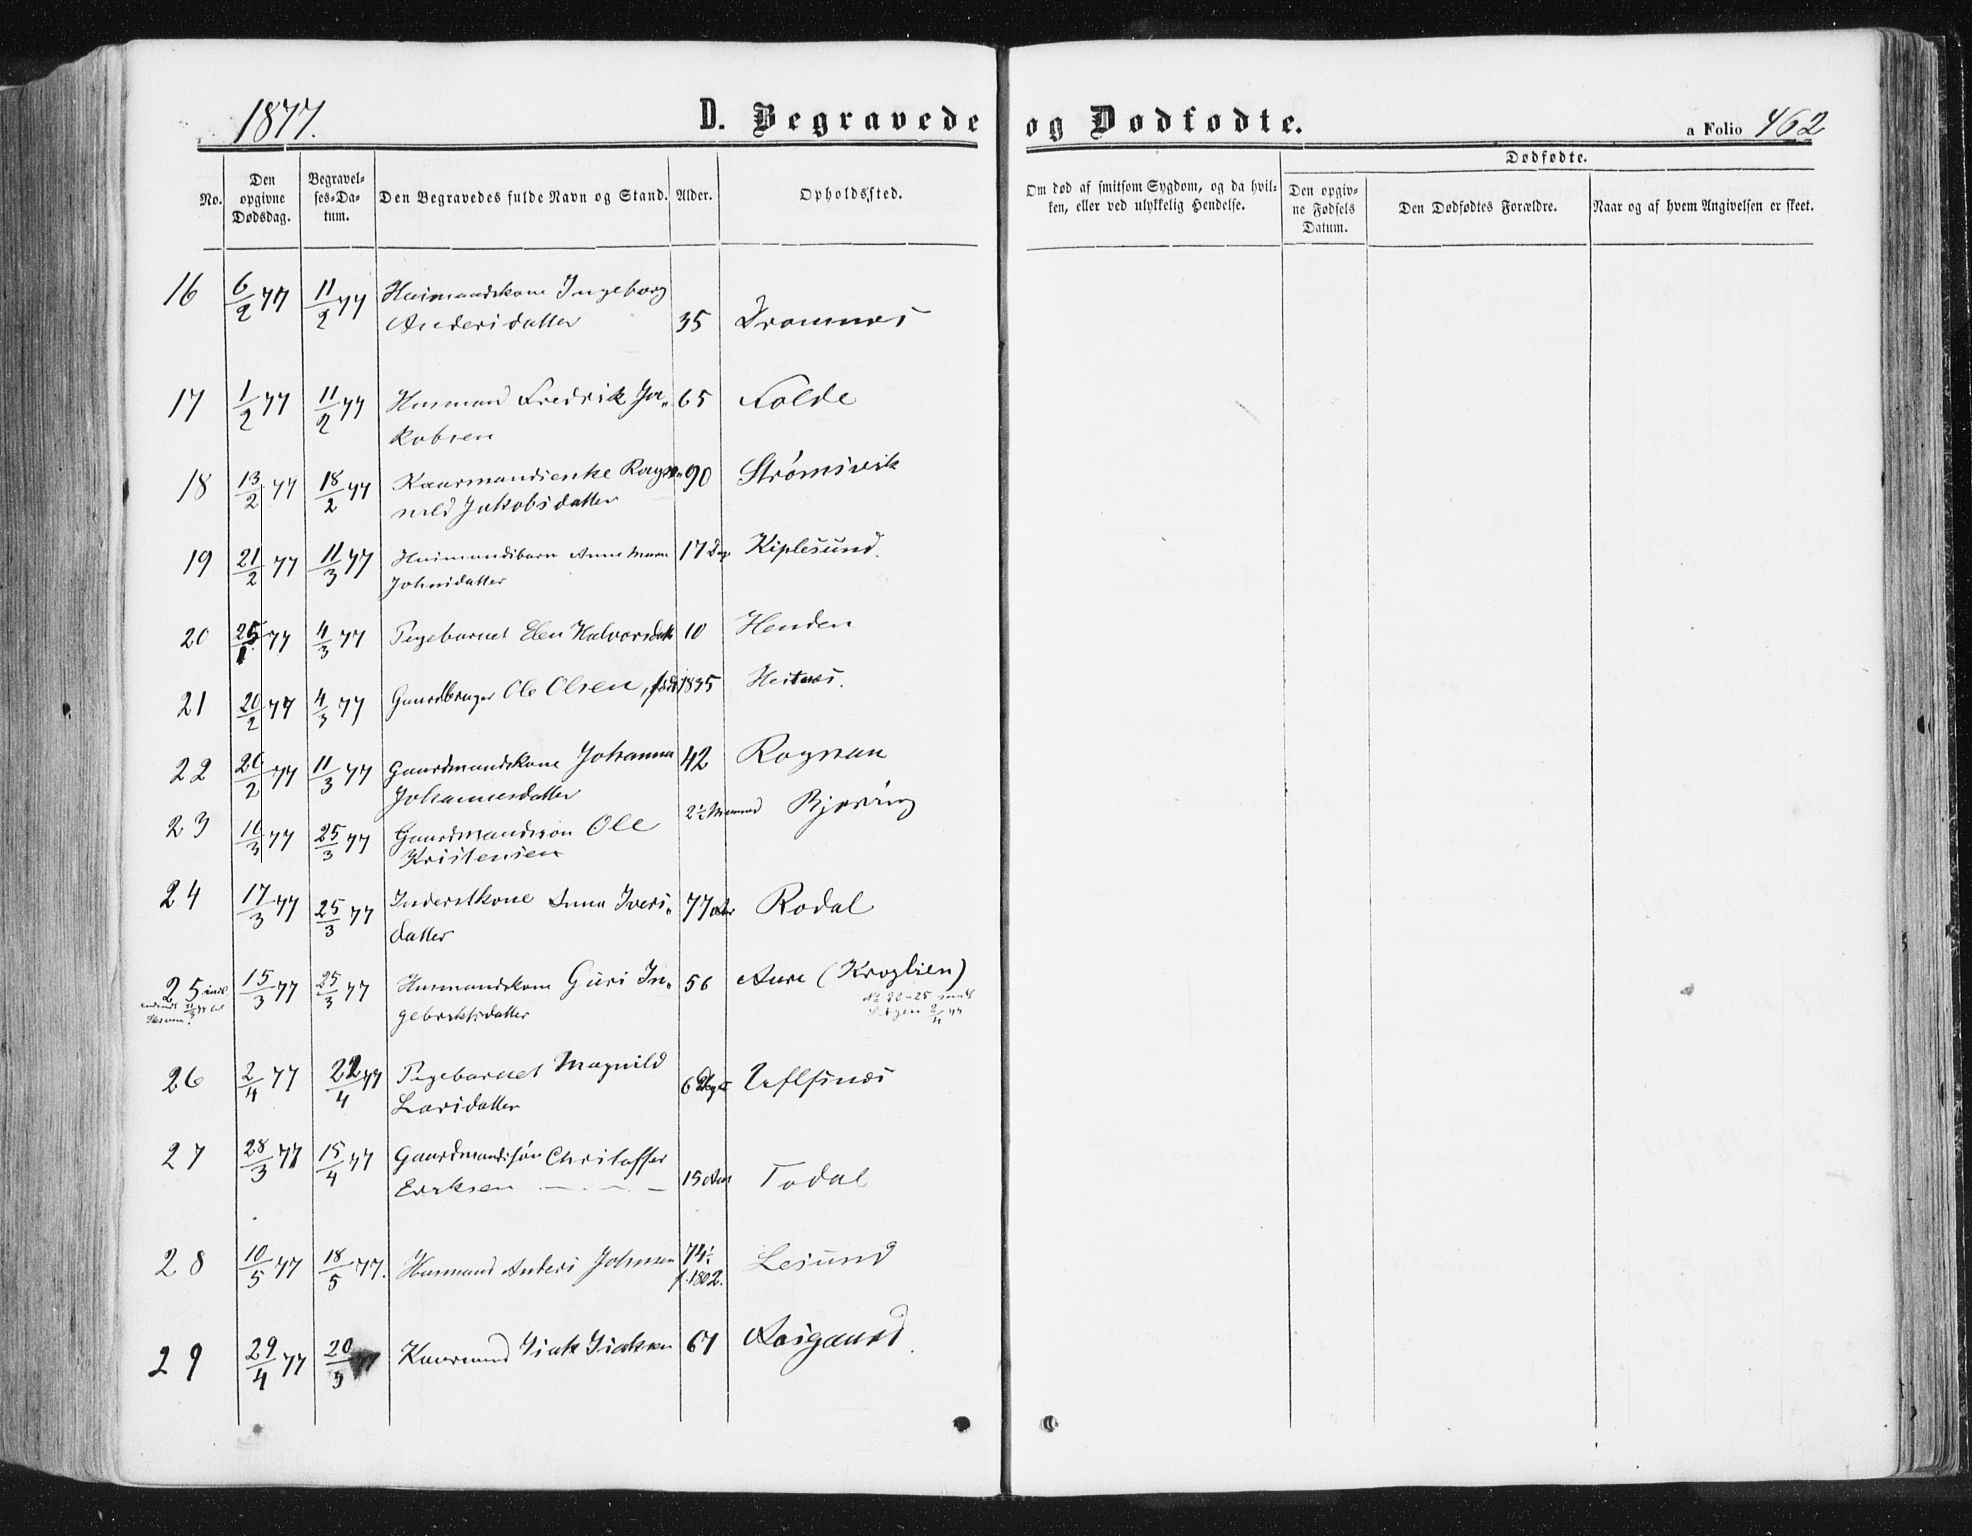 1877.
D. Begravede og Dødfødte.
a Folio 462
No.
Den opgivne Dødsdag.
Begravelses-Datum.
Den Begravedes fulde Navn og Stand.
Alder.
Opholdssted.
Om død af smitsom Sygdom, og da hvilken, eller ved ulykkelig Hendelse.
Dødfødte.
Den opgivne Fødsels Datum.
Den Dødfødtes Forældre.
Naar og af hvem Angivelsen er skeet.
16 6/2 77 11/2 77 Husmandskone Ingeborg
Andersdatter 35 Dromnes
17 1/2 77 11/2 77 Husmand Fredrik Ja„ 65 Folde
kobsen
18 13/2 77 18/2 77 Kaarmandsenke Ragn„ 90 Strømsvik
nild Jakobsdatter
19 21/2 77 11/3 77 Husmandsbarn Anne 17 Dag Kiplesund.
Johnsdatter
20 25/1 77 4/3 77 Pigebarnet Elen Halvorsdatt 10 Henden
21 20/2 77 4/3 77 Gaardbruger Ole Olsen, født 1835 Hestnes.
22 26/2 77 11/3 77 Gaardmandskone Johanna 42 Rognan
Johannesdatter
23 16/3 77 25/3 77 Gaardmandsson Ole 2½ Maaned Bjøring
Kristensen
24 17/3 77 25/3 77 Inderstkone Anna Ivers„ 77 Aar Rodal
datter
25 15/3 77 25/3 77 Husmandskone Guri In„ 56 Aure (Kroglien)
gebrktsdatter
No 22-25 sendt
2/4 77
26 2/4 77 22/4 77 Pigebarnet Magnild 6 Dage Ulfsnes
Larsdatter
27 28/3 77 15/4 77 Gaardmandsøn Christoffer
Eriksen 15 Aar Todal
28 10/5 77 18/5 77. Husmand Anders Johnsen 74 Lesund
f. 1802.
29 29/4 77 20/5 77 Kaarmand Isak Isaksen 67 Aasgaard.